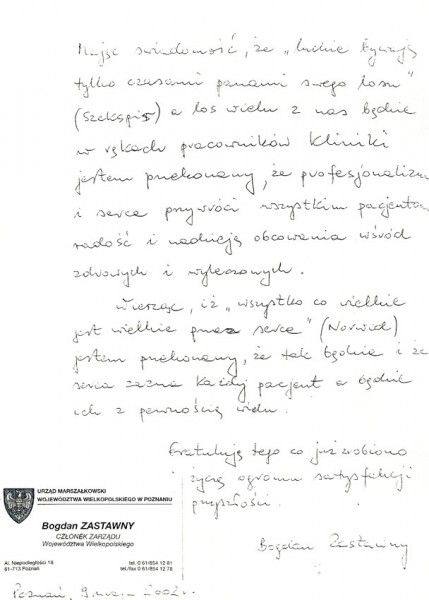 Mając świadomość, że „ludzie bywają
tylko czasami panami swego losu"
(Szekspir) a los wielu z nas będzie
w rękach pracowników Kliniki
jestem przekonany, że profesjonalizm
i serce przywróci wszystkim pacjentom
radość i nadzieję obcowania wśród
zdrowych i wyleczonych.
Wierząc, iż „wszystko co wielkie
jest wielkie przez serce" (Norwid)
jestem przekonany, że tak będzie i że
serca zazna każdy pacjent a będzie
ich z pewnością wielu.
Gratuluję tego co już zrobiono
życzę ogromu satysfakcji
przyszłości.
Bogdan Zastawny
URZĄD MARSZAŁKOWSKI
WOJEWÓDZTWA WIELKOPOLSKIEGO W POZNANIU
Bogdan ZASTAWNY
CZŁONEK ZARZĄDU
Województwa Wielkopolskiego
Al. Niepodległości 18 tel. 0 61/854 12 81
61-713 Poznań tel./fax 0 61/854 12 78
Poznań, 9 maja 2002 r.